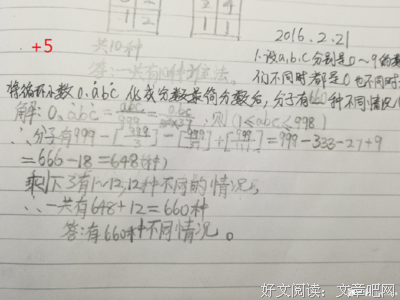 +5
共10种
答:一共有10种方法。
2016.2.21
1.设a,b,c分别是0~9的数
们不同时都是0也不同时
将循环小数0.ȧbċ化成分数最简分数后,分子有660种不同情况
解:0.ȧbċ=abc/999=abc/,则(1≤abc≤998)
∴分子有999-[999/3]-[999/37]+[999/111]=999-333-27+9
=666-18=648(种)
剩下3有1~12,12种不同的情况,
∴一共有648+12=660种
答:有660种不同情况。
好文阅读:文章吧网